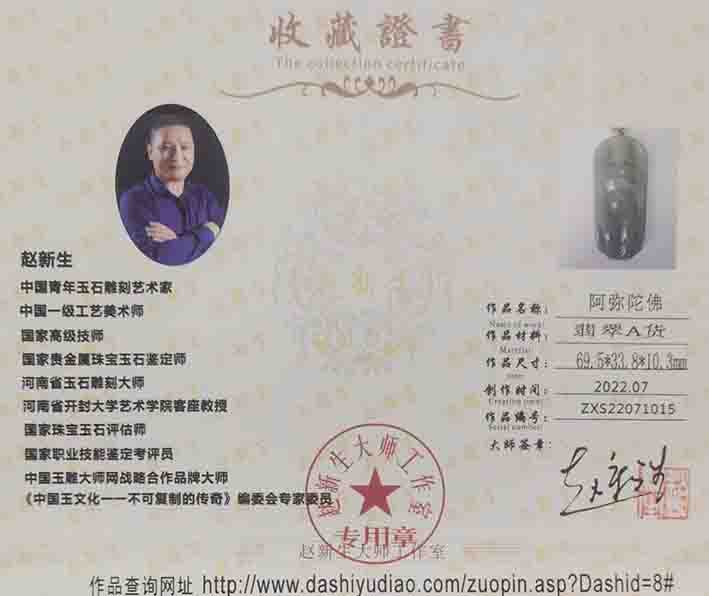 收藏證書
The collection certificate
赵新生
中国青年玉石雕刻艺术家
中国一级工艺美术师
国家高级技师
国家贵金属珠宝玉石鉴定师
河南省玉石雕刻大师
河南省开封大学艺术学院客座教授
国家珠宝玉石评估师
国家职业技能鉴定考评员
中国玉雕大师网战略合作品牌大师
《中国玉文化一一不可复制的传奇》编委会专家委员
作品名称： 阿弥陀佛
Name of work:
作品材料： 翡翠A货
Material:
作品尺寸： 69.5*33.8*10.3mm
Size:
创作时间： 2022.07
Creation time:
作品编号： ZXS22071015
Serial number:
大师签章：
赵新生大师工作室
专用章
赵新生大师工作室
作品查询网址 http://www.dashiyudiao.com/zuopin.asp?Dashid=8#